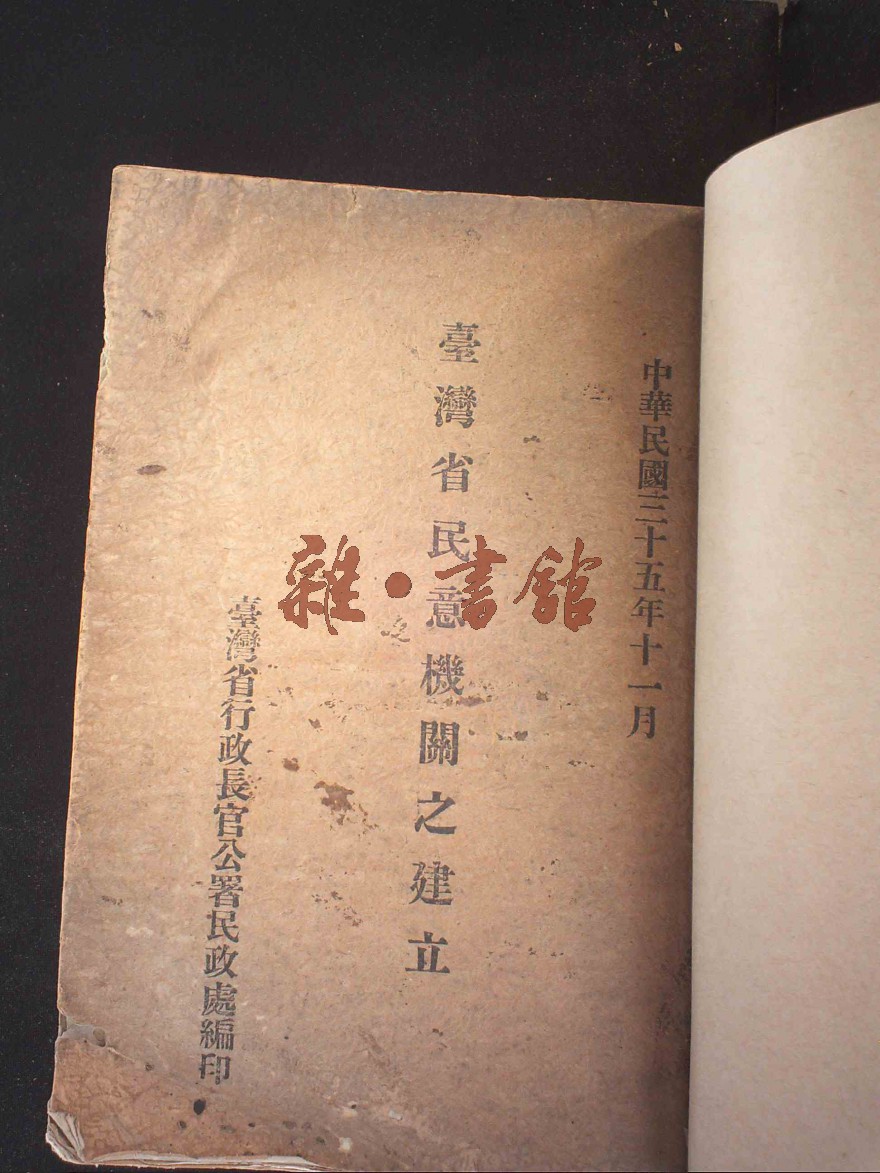 中華民國三十五年十一月
臺灣省民意機關之建立
臺灣省行政長官公署民政處編印
雜·書館